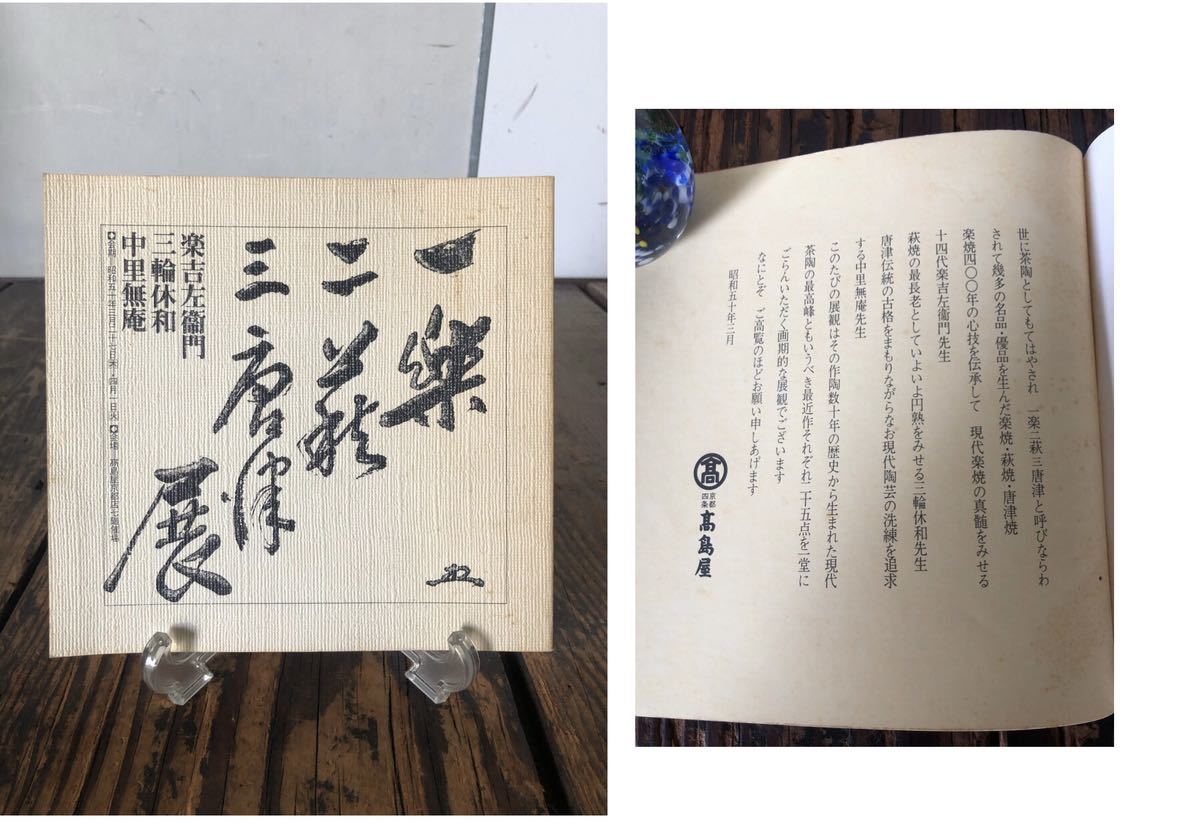 一楽
二萩
三唐津
展
楽吉左衞門
三輪休和
中里無庵
会期 昭和五十年三月二十七日(木)→四月一日(火) 会場 高島屋京都店七階催場
世に茶陶としてもてはやされ 一楽二萩三唐津と呼びならわ
されて幾多の名品・優品を生んだ楽焼・萩焼・唐津焼
楽焼四〇〇年の心技を伝承して 現代楽焼の真髄をみせる
十四代楽吉左衞門先生
萩焼の最長老としていよいよ円熟をみせる三輪休和先生
唐津伝統の古格をまもりながらなお現代陶芸の洗練を追求
する中里無庵先生
このたびの展観はその作陶数十年の歴史から生まれた現代
茶陶の最高峰ともいうべき最近作それぞれ二十五点を一堂に
ごらんいただく画期的な展観でございます
なにとぞ ご高覧のほどお願い申しあげます
昭和五十年三月
髙
京都
四条
髙島屋